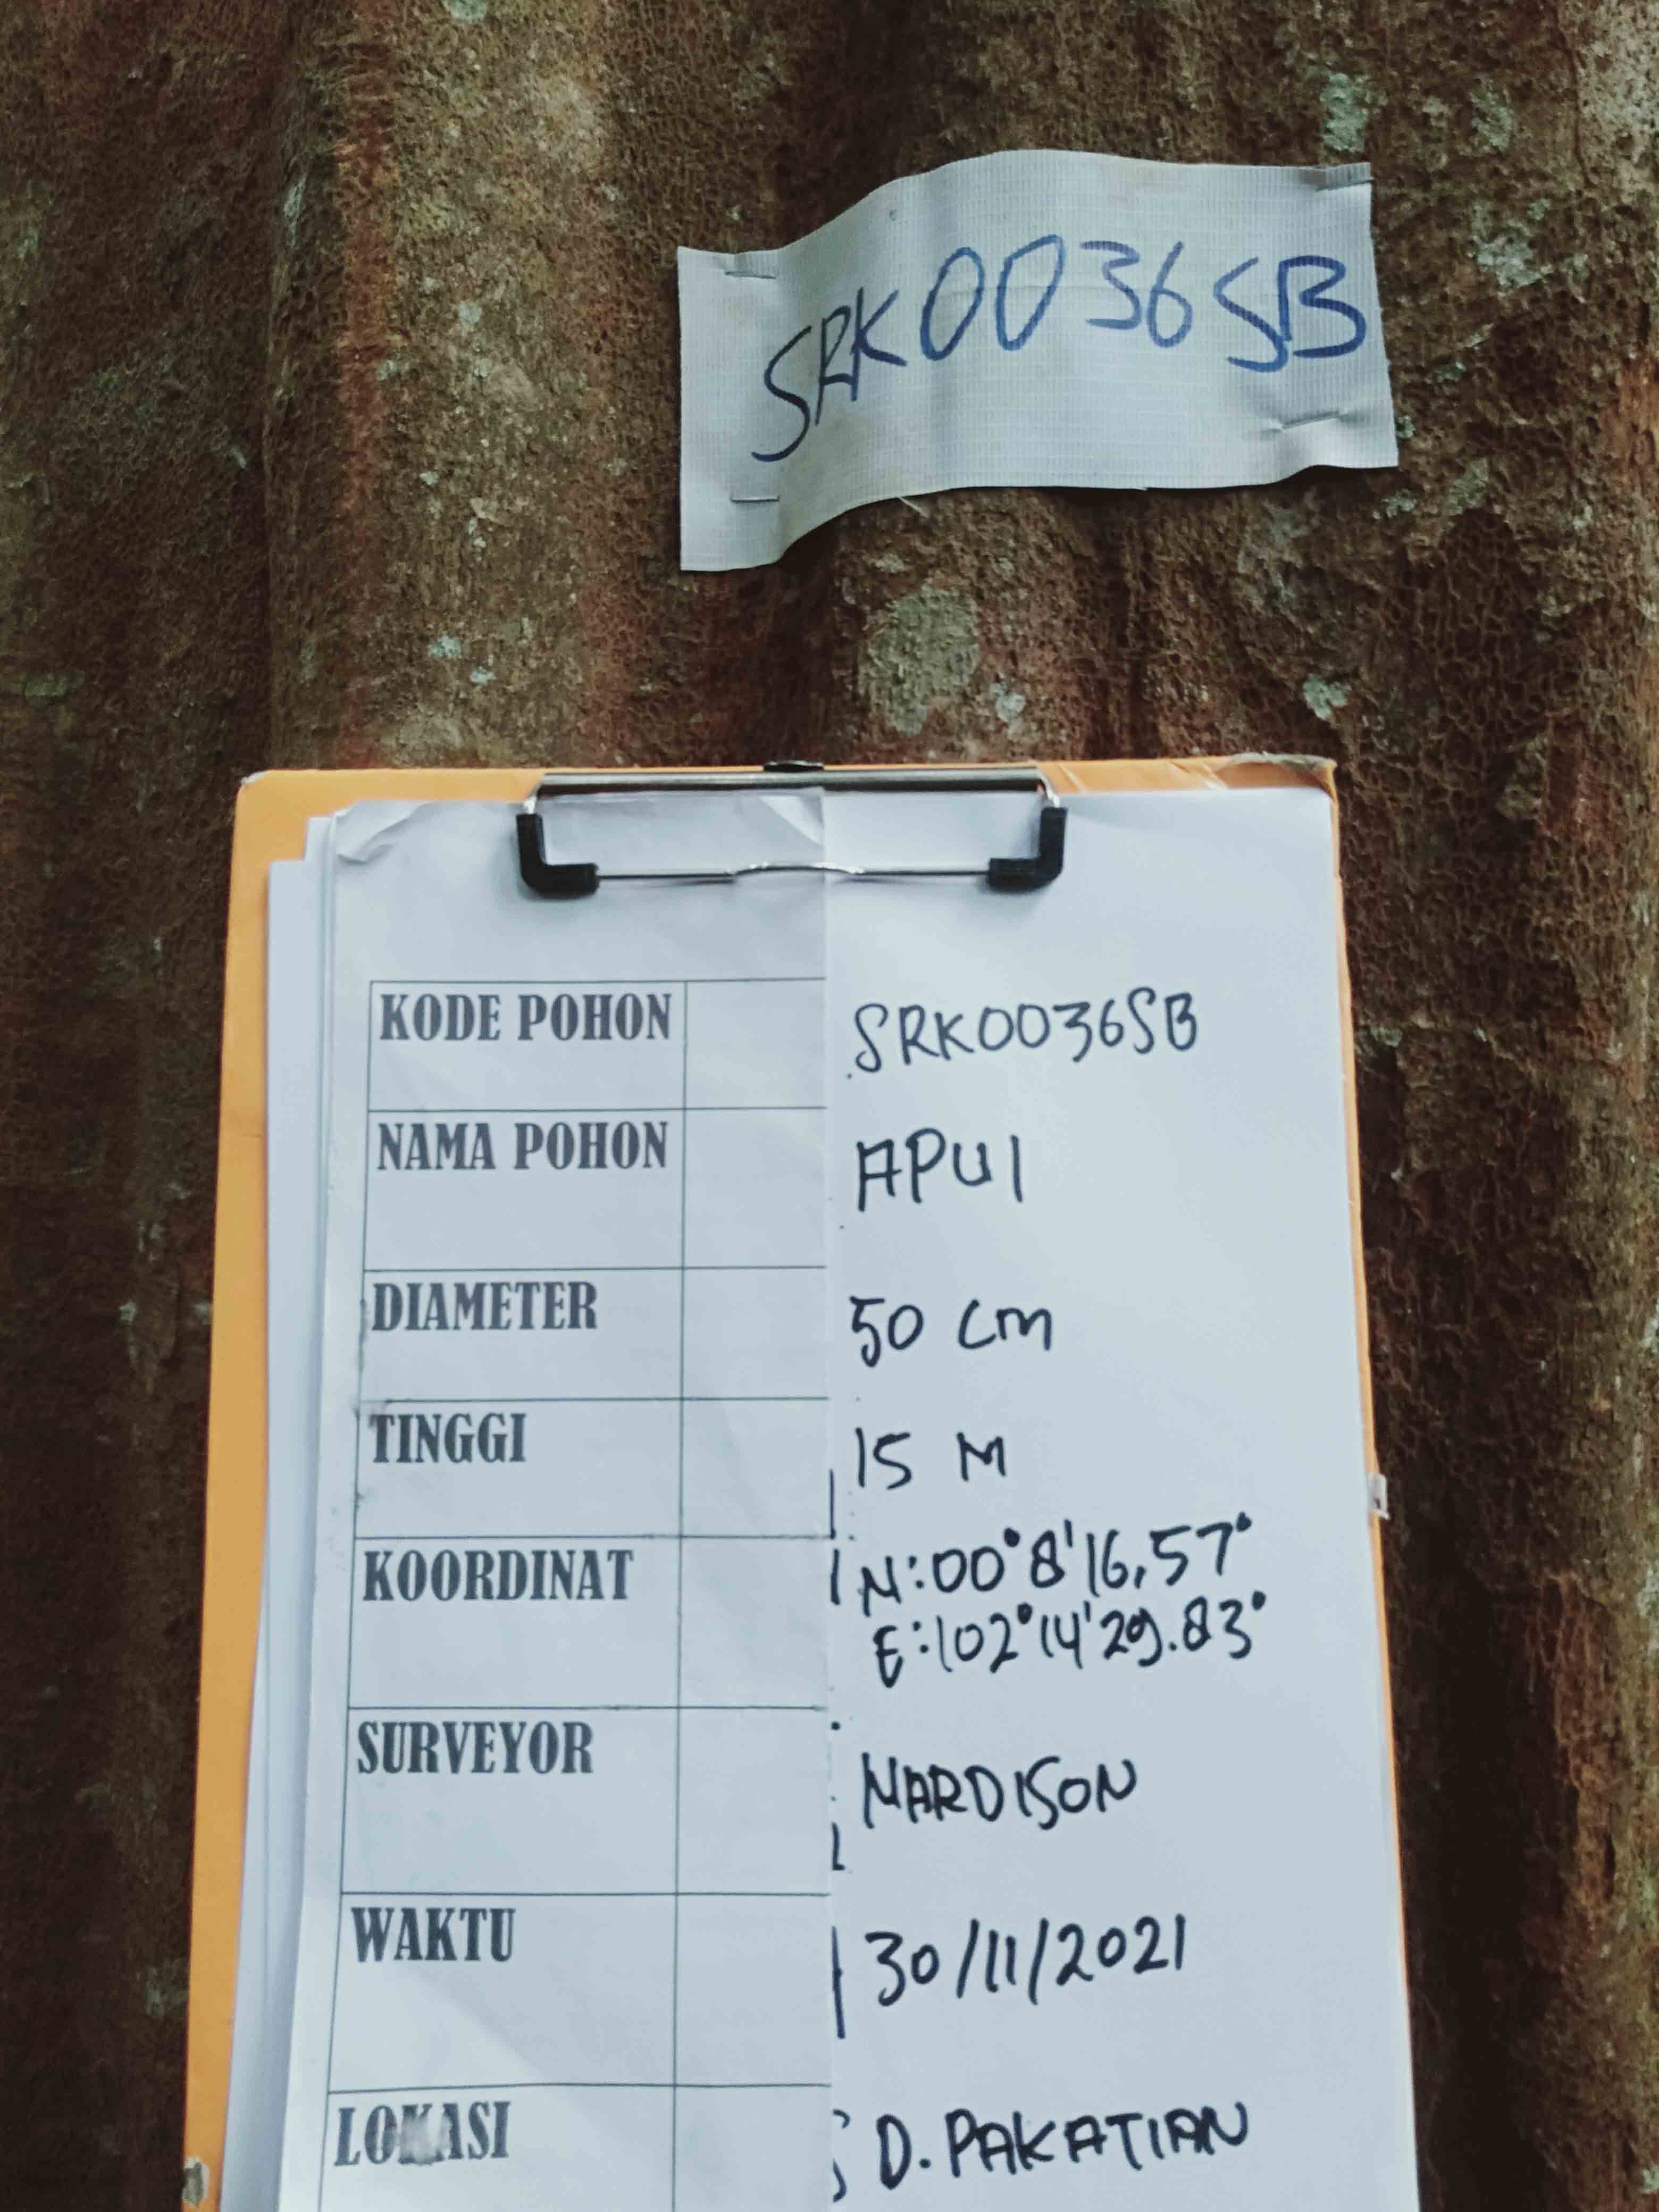 SRK0036SB
KODE POHON SRK0036SB
NAMA POHON APUI
DIAMETER 50 cm
TINGGI 15 M
KOORDINAT N:00°8'16,57°
E:102°14'29.83°
SURVEYOR NARDISON
WAKTU 30/11/2021
LOKASI D. PAKATIAN